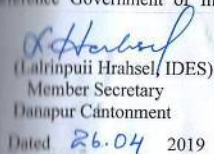 Government of In
L Hrahsel
(Lalrinpuii Hrahsel, IDES)
Member Secretary
Danapur Cantonment
Dated 26.04 2019